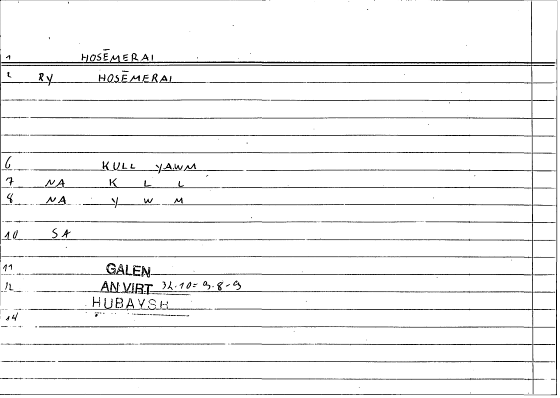 1 HOSĒMERAI
2 Ry HOSĒMERAI
6 KULL YAWM
7 NA K L L
8 NA Y W M
10 SA
11 GALEN
12 AN VIRT 32.10= 9-8-9
HUBAYSH
14